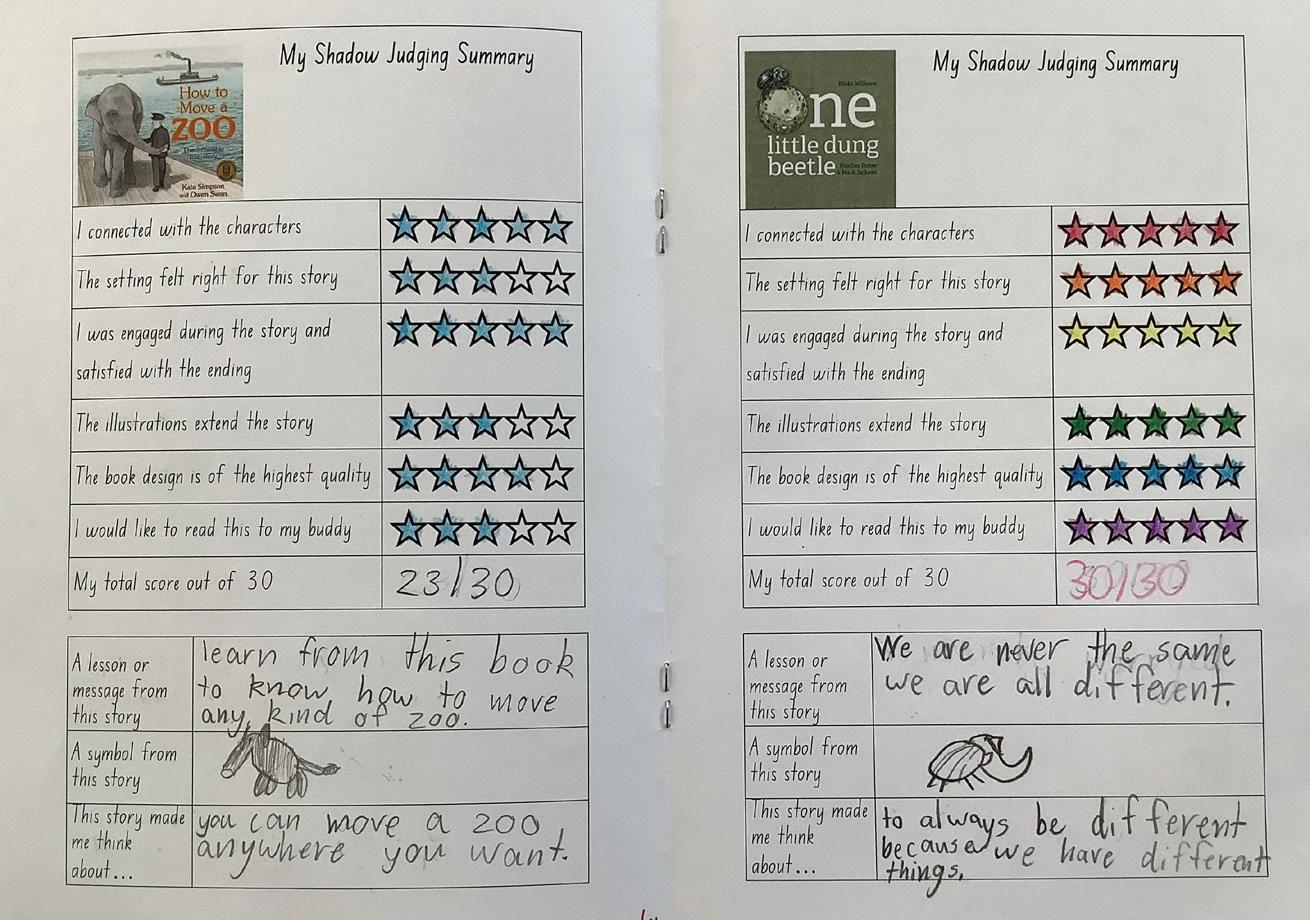 My Shadow Judging Summary
How to
Move a
ZOO
The incredible
true story
Kate Simpson
and Owen Swan
I connected with the characters
The setting felt right for this story
I was engaged during the story and
satisfied with the ending
The illustrations extend the story
The book design is of the highest quality
I would like to read this to my buddy
My total score out of 30
23/30
A lesson or
message from
this story
learn from this book
to know how to move
any kind of zoo.
A symbol from
this story
This story made
me think
about...
you can move a zoo
anywhere you want.
My Shadow Judging Summary
Rhian Williams
One
little dung
beetle
Heather Potter
& Mark Jackson
I connected with the characters
The setting felt right for this story
I was engaged during the story and
satisfied with the ending
The illustrations extend the story
The book design is of the highest quality
I would like to read this to my buddy
My total score out of 30
30/30
A lesson or
message from
this story
We are never the same
we are all different.
A symbol from
this story
This story made
me think
about...
to always be different
because we have different
things.